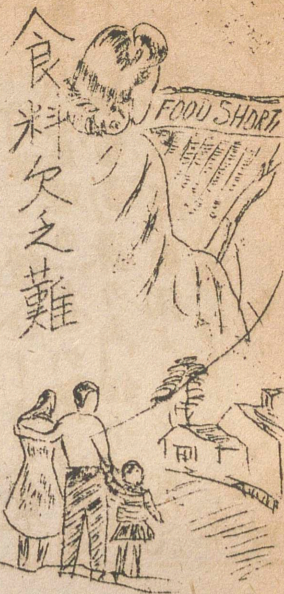 食料欠乏難
FOOD SHORT